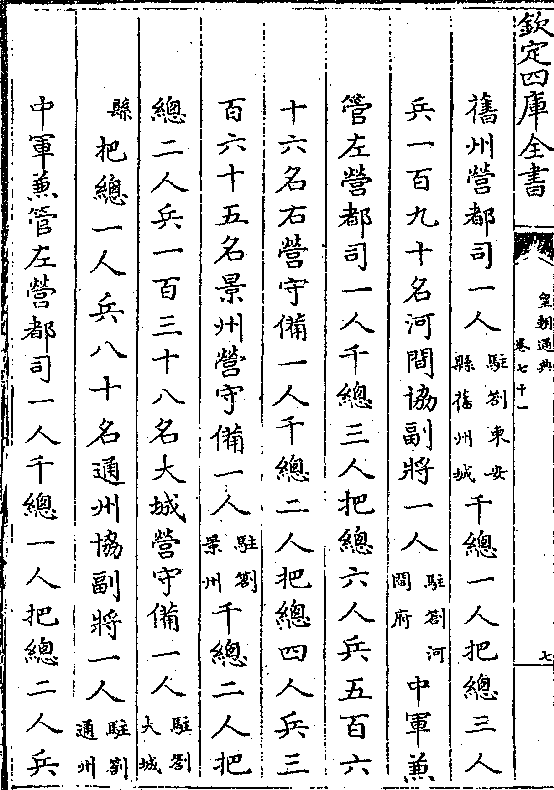 欽定四庫全書
皇朝通典
卷七十一
七
舊州營都司一人駐劄東安縣舊州城千總一人把總三人
兵一百九十名河間協副將一人駐劄河間府中軍兼
管左營都司一人千總三人把總六人兵五百六
十六名右營守備一人千總二人把總四人兵三
百六十五名景州營守備一人駐劄景州千總二人把
總二人兵一百三十八名大城營守備一人駐劄大城
縣把總一人兵八十名通州協副將一人駐劄通州
中軍兼管左營都司一人千總一人把總二人兵